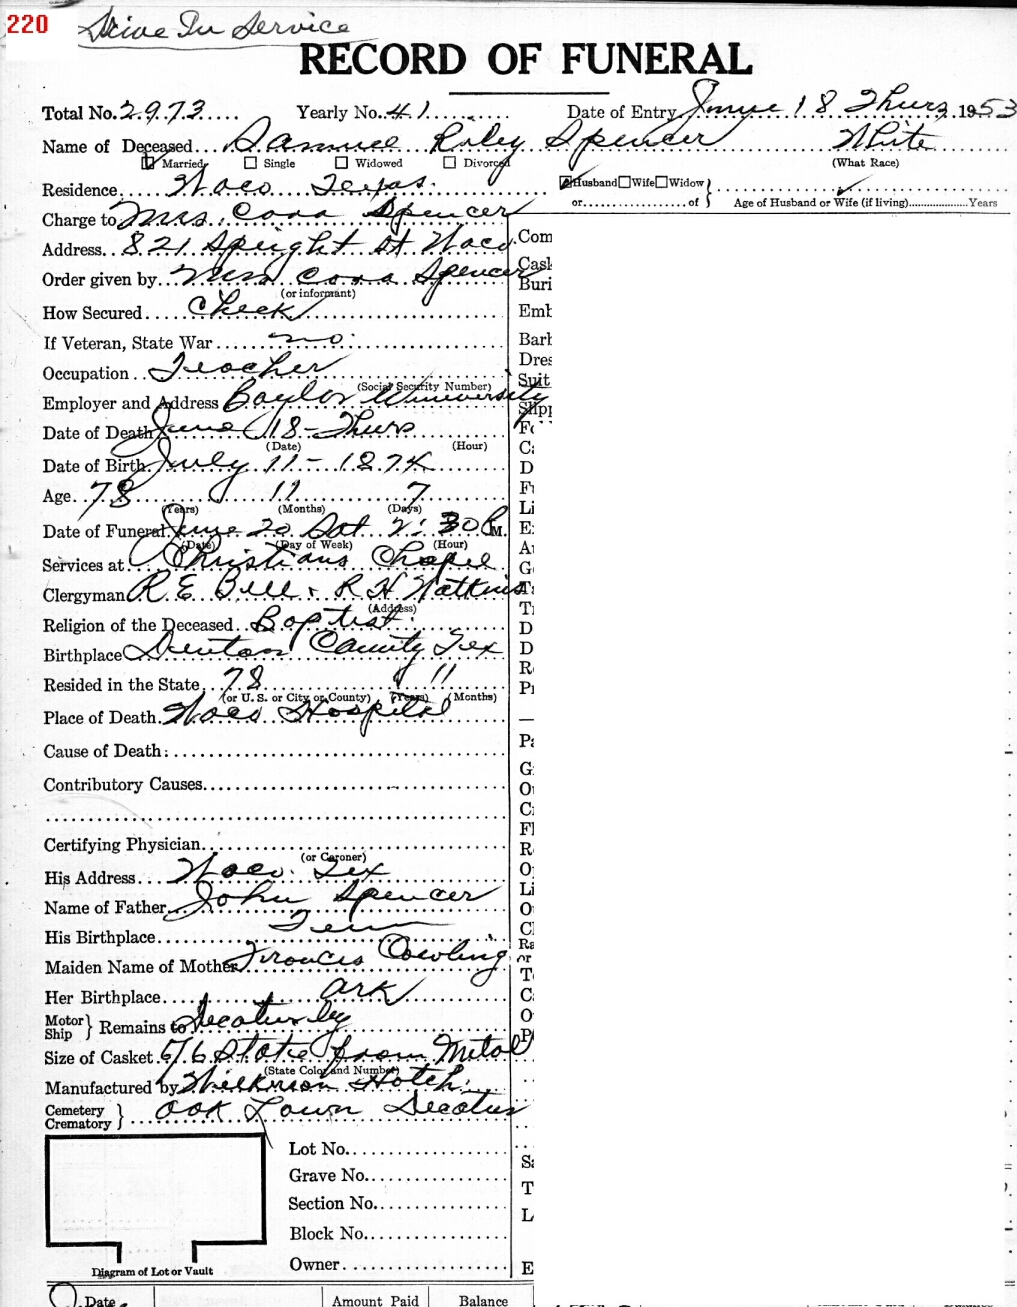 220 Drive In Service
RECORD OF FUNERAL
Total No. 2973 Yearly No. 41 Date of Entry June 18 Thurs, 1953
Name of Deceased Samuel Riley Spencer White
Married Single Widowed Divorced (What Race)
Residence Waco Texas. Husband Wife Widow
or of Age of Husband or Wife (if living) Years
Charge to Mrs. Cora Spencer
Address 821 Speight St Waco. Com
Order given by Mrs Cora Spencer Cask
(or informant) Buri
How Secured Check Emb
If Veteran, State War no. Barb
Occupation Teacher Dres
(Social Security Number) Suit
Employer and Address Baylor University Slipp
Date of Death June 18 - Thurs
(Date) (Hour)
Date of Birth July 11 - 1874
Age 78 11 7
(Years) (Months) (Days)
Date of Funeral June 20 Sat 2:30 P M.
(Date) (Day of Week) (Hour)
Services at Christians Chapel
Clergyman R E Bell & R H Watkins
(Address)
Religion of the Deceased Baptist.
Birthplace Denton County Tex
Resided in the State 78 11
(or U. S. or City or County) (Years) (Months)
Place of Death Waco Hospital
Cause of Death:
Contributory Causes
Certifying Physician
(or Coroner)
His Address Waco. Tex
Name of Father John Spencer
His Birthplace Tenn
Maiden Name of Mother Frances Cowling
Her Birthplace Ark
Motor Ship Remains to Decatur by
Size of Casket 6/6 State from Metal
(State Color and Number)
Manufactured by Wilkirson Hatch.
Cemetery Crematory Oak Lawn Decatur
Lot No.
Grave No.
Section No.
Block No.
Owner
Diagram of Lot or Vault
Date Amount Paid Balance